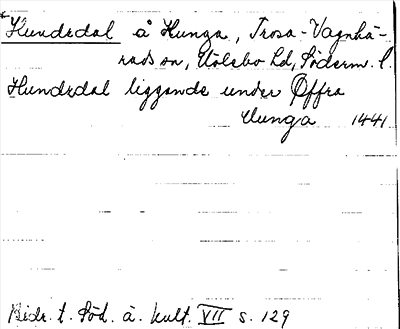 *Hundsdal å Hunga, Trosa-Vagnhä-
rads sn, Hölebo hd, Söderm. l.
Hundzdal liggande under Öffra
Hunga 1441
Bidr. t. Söd. ä. kult. VII s. 129